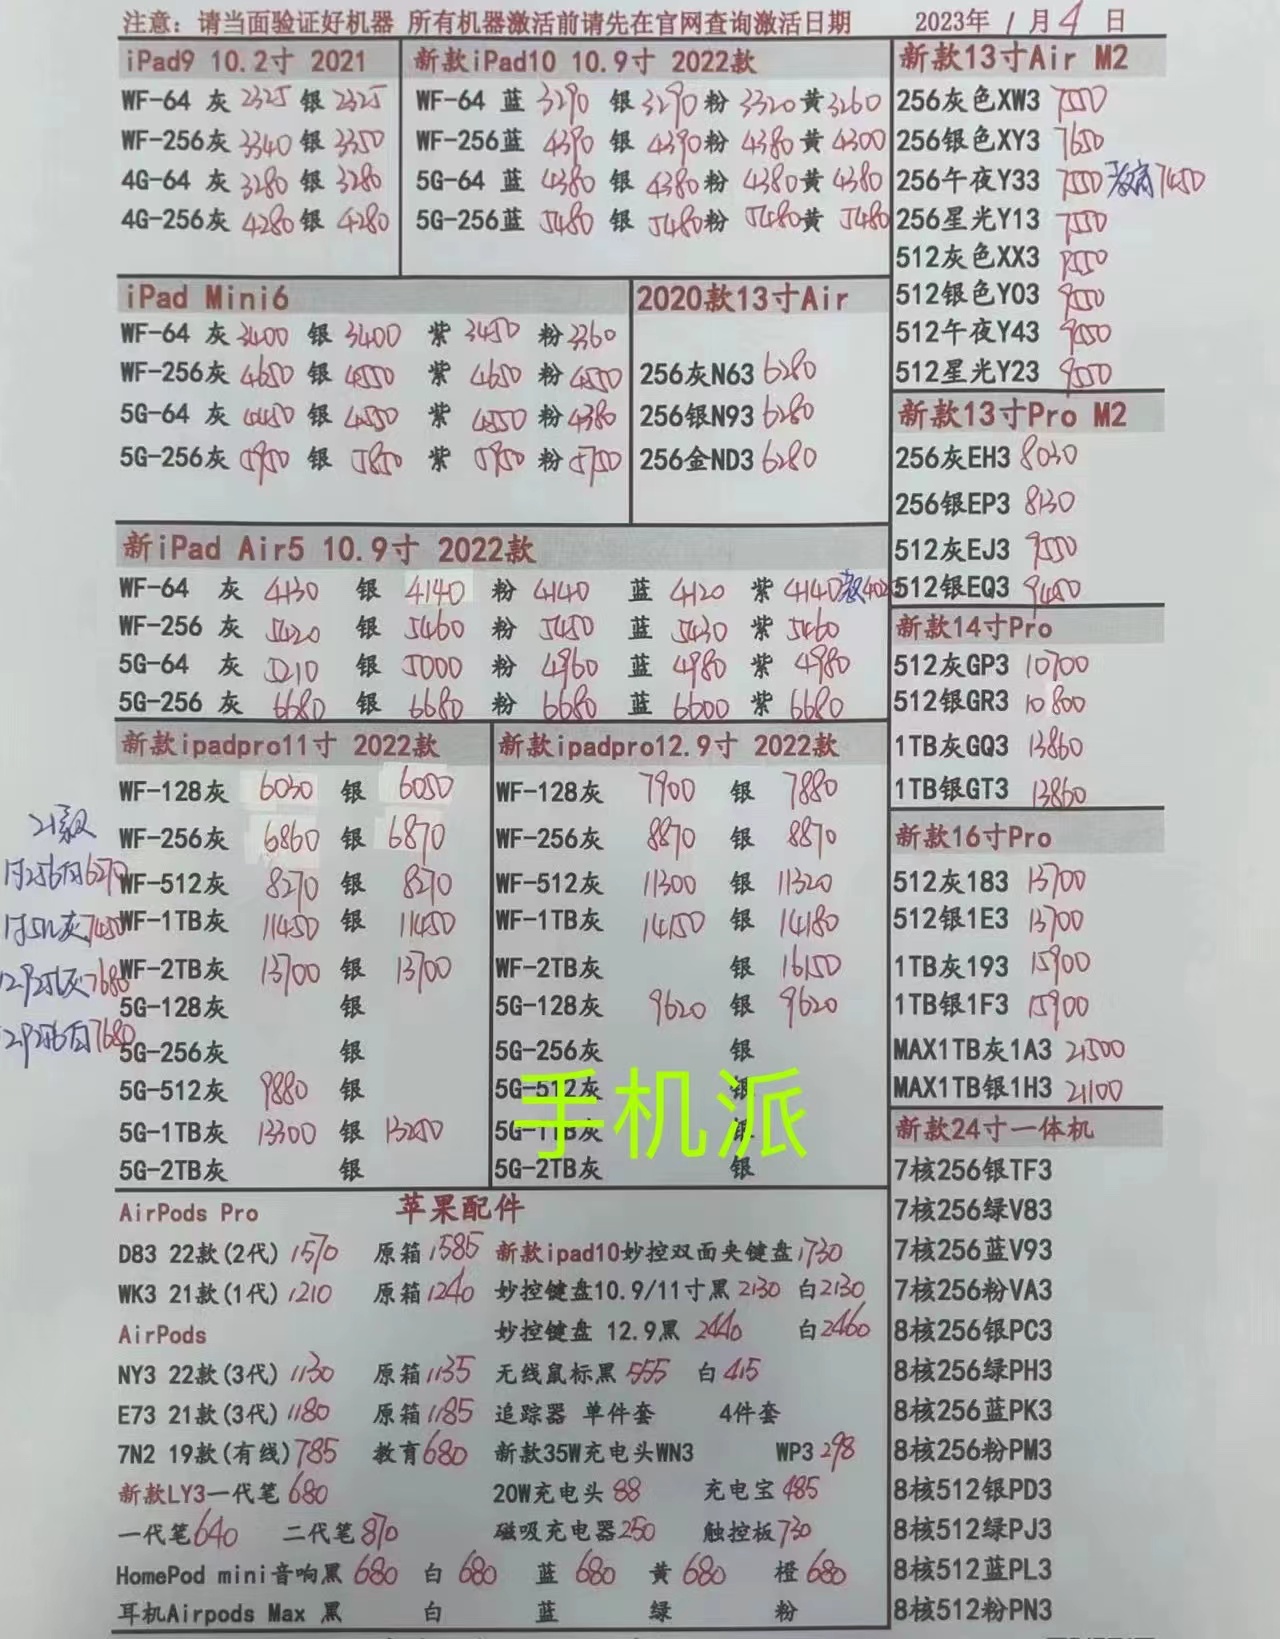 注意：请当面验证好机器 所有机器激活前请先在官网查询激活日期 2023年 1 月 4 日
iPad9 10.2寸 2021
WF-64 灰 2325 银 2325
WF-256灰 3340 银 3350
4G-64 灰 3280 银 3280
4G-256灰 4280 银 4280
新款iPad10 10.9寸 2022款
WF-64 蓝 3290 银 3290 粉 3320 黄 3260
WF-256蓝 4390 银 4390 粉 4380 黄 4300
5G-64 蓝 4380 银 4380 粉 4380 黄 4380
5G-256蓝 5480 银 5480 粉 5480 黄 5480
iPad Mini6
WF-64 灰 3400 银 3400 紫 3450 粉 3360
WF-256灰 4650 银 4550 紫 4650 粉 4550
5G-64 灰 4450 银 4550 紫 4550 粉 4380
5G-256灰 5950 银 5850 紫 5950 粉 5750
2020款13寸Air
256灰N63 6280
256银N93 6280
256金ND3 6280
新iPad Air5 10.9寸 2022款
WF-64 灰 4130 银 4140 粉 4140 蓝 4120 紫 4140
WF-256 灰 5420 银 5460 粉 5450 蓝 5430 紫 5460
5G-64 灰 5210 银 5000 粉 4960 蓝 4980 紫 4980
5G-256 灰 6680 银 6680 粉 6680 蓝 6600 紫 6680
新款ipadpro11寸 2022款
WF-128灰 6030 银 6050
WF-256灰 6860 银 6870
WF-512灰 8270 银 8270
WF-1TB灰 11450 银 11450
WF-2TB灰 13700 银 13700
5G-128灰 银
5G-256灰 银
5G-512灰 9880 银
5G-1TB灰 13300 银 13250
5G-2TB灰 银
21款
11寸256白6270
11寸512灰7450
12.9256灰7680
12.9256白7680
新款ipadpro12.9寸 2022款
WF-128灰 7900 银 7880
WF-256灰 8870 银 8870
WF-512灰 11300 银 11320
WF-1TB灰 14150 银 14180
WF-2TB灰 银 16150
5G-128灰 9620 银 9620
5G-256灰 银
5G-512灰 银
5G-1TB灰 银
5G-2TB灰 银
手机派
苹果配件
AirPods Pro
D83 22款(2代) 1570 原箱 1585
WK3 21款(1代) 1210 原箱 1240
AirPods
NY3 22款(3代) 1130 原箱 1135
E73 21款(3代) 1180 原箱 1185
7N2 19款(有线) 785 教育 680
新款LY3一代笔 680
一代笔 640 二代笔 870
新款ipad10妙控双面夹键盘 1730
妙控键盘10.9/11寸黑 2130 白 2130
妙控键盘 12.9黑 2440 白 2460
无线鼠标黑 555 白 415
追踪器 单件套 4件套
新款35W充电头WN3 WP3 298
20W充电头 88 充电宝 485
磁吸充电器 250 触控板 730
HomePod mini音响黑 680 白 680 蓝 680 黄 680 橙 680
耳机Airpods Max 黑 白 蓝 绿 粉
新款13寸Air M2
256灰色XW3 7550
256银色XY3 7650
256午夜Y33 7550 教育7450
256星光Y13 7550
512灰色XX3
512银色Y03
512午夜Y43
512星光Y23
新款13寸Pro M2
256灰EH3 8030
256银EP3 8130
512灰EJ3 9550
512银EQ3 9450
新款14寸Pro
512灰GP3 10700
512银GR3 10800
1TB灰GQ3 13860
1TB银GT3 13860
新款16寸Pro
512灰183 13700
512银1E3 13700
1TB灰193 15900
1TB银1F3 15900
MAX1TB灰1A3 21500
MAX1TB银1H3 21100
新款24寸一体机
7核256银TF3
7核256绿V83
7核256蓝V93
7核256粉VA3
8核256银PC3
8核256绿PH3
8核256蓝PK3
8核256粉PM3
8核512银PD3
8核512绿PJ3
8核512蓝PL3
8核512粉PN3